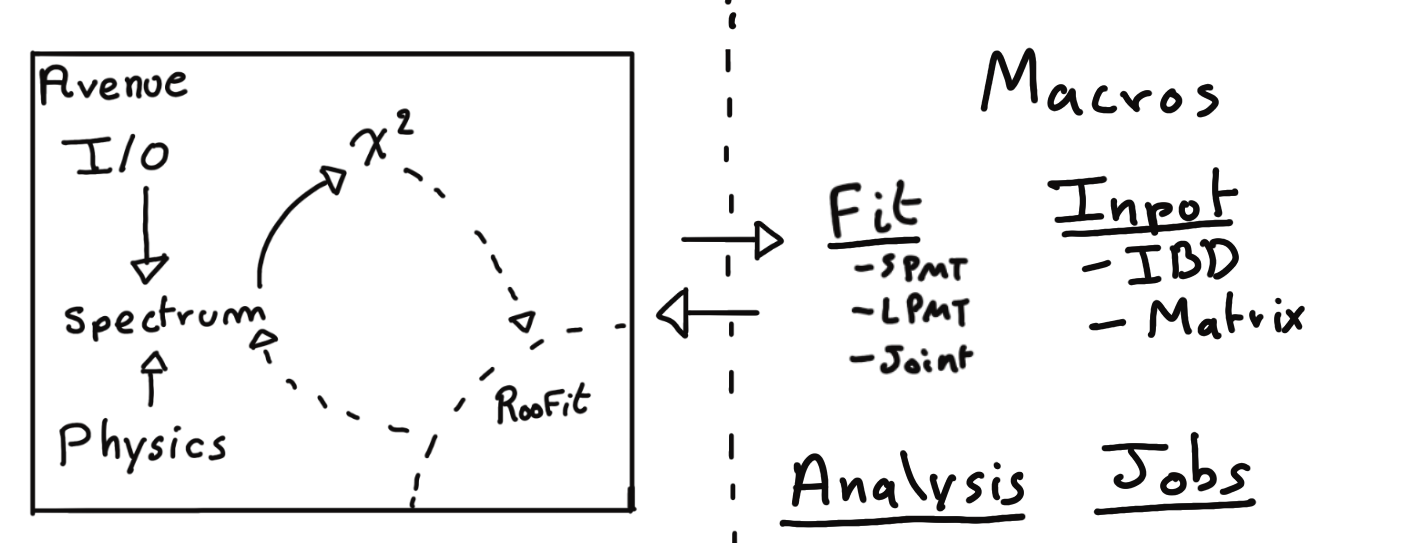 Avenue
I/O
χ²
spectrum
Physics
RooFit
Macros
Fit
- SPMT
- LPMT
- Joint
Input
- IBD
- Matrix
Analysis
Jobs